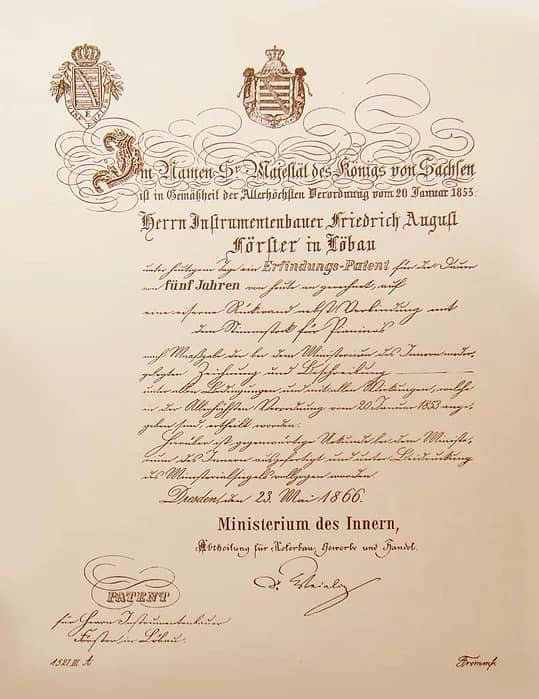 Im Namen Sr. Majestät des Königs von Sachsen
ist in Gemäßheit der Allerhöchsten Verordnung vom 20 Januar 1853.
Herrn Instrumentenbauer Friedrich August
Förster in Löbau
unter heutigem Tage ein Erfindungs-Patent für die Dauer
von fünf Jahren von heute an gerechnet, auf
eine eiserne Rückwand nebst Verbindung mit
dem Stimmstock für Pianinos
nach Maaßgabe der bei dem Ministerium des Innern nieder-
gelegten Zeichnung und Beschreibung
unter allen Bedingungen und mit allen Wirkungen, welche
in der Allerhöchsten Verordnung vom 20 Januar 1853 ange-
geben sind, ertheilt worden.
Hierüber ist gegenwärtige Urkunde bei dem Ministe-
rium des Innern ausgefertigt und unter Beidruckung
des Ministerialsiegels vollzogen worden.
Dresden, den 23. Mai 1866.
Ministerium des Innern,
Abtheilung für Ackerbau, Gewerbe und Handel.
PATENT
für Herrn Instrumentenbauer
Förster in Löbau.
1521.III. A